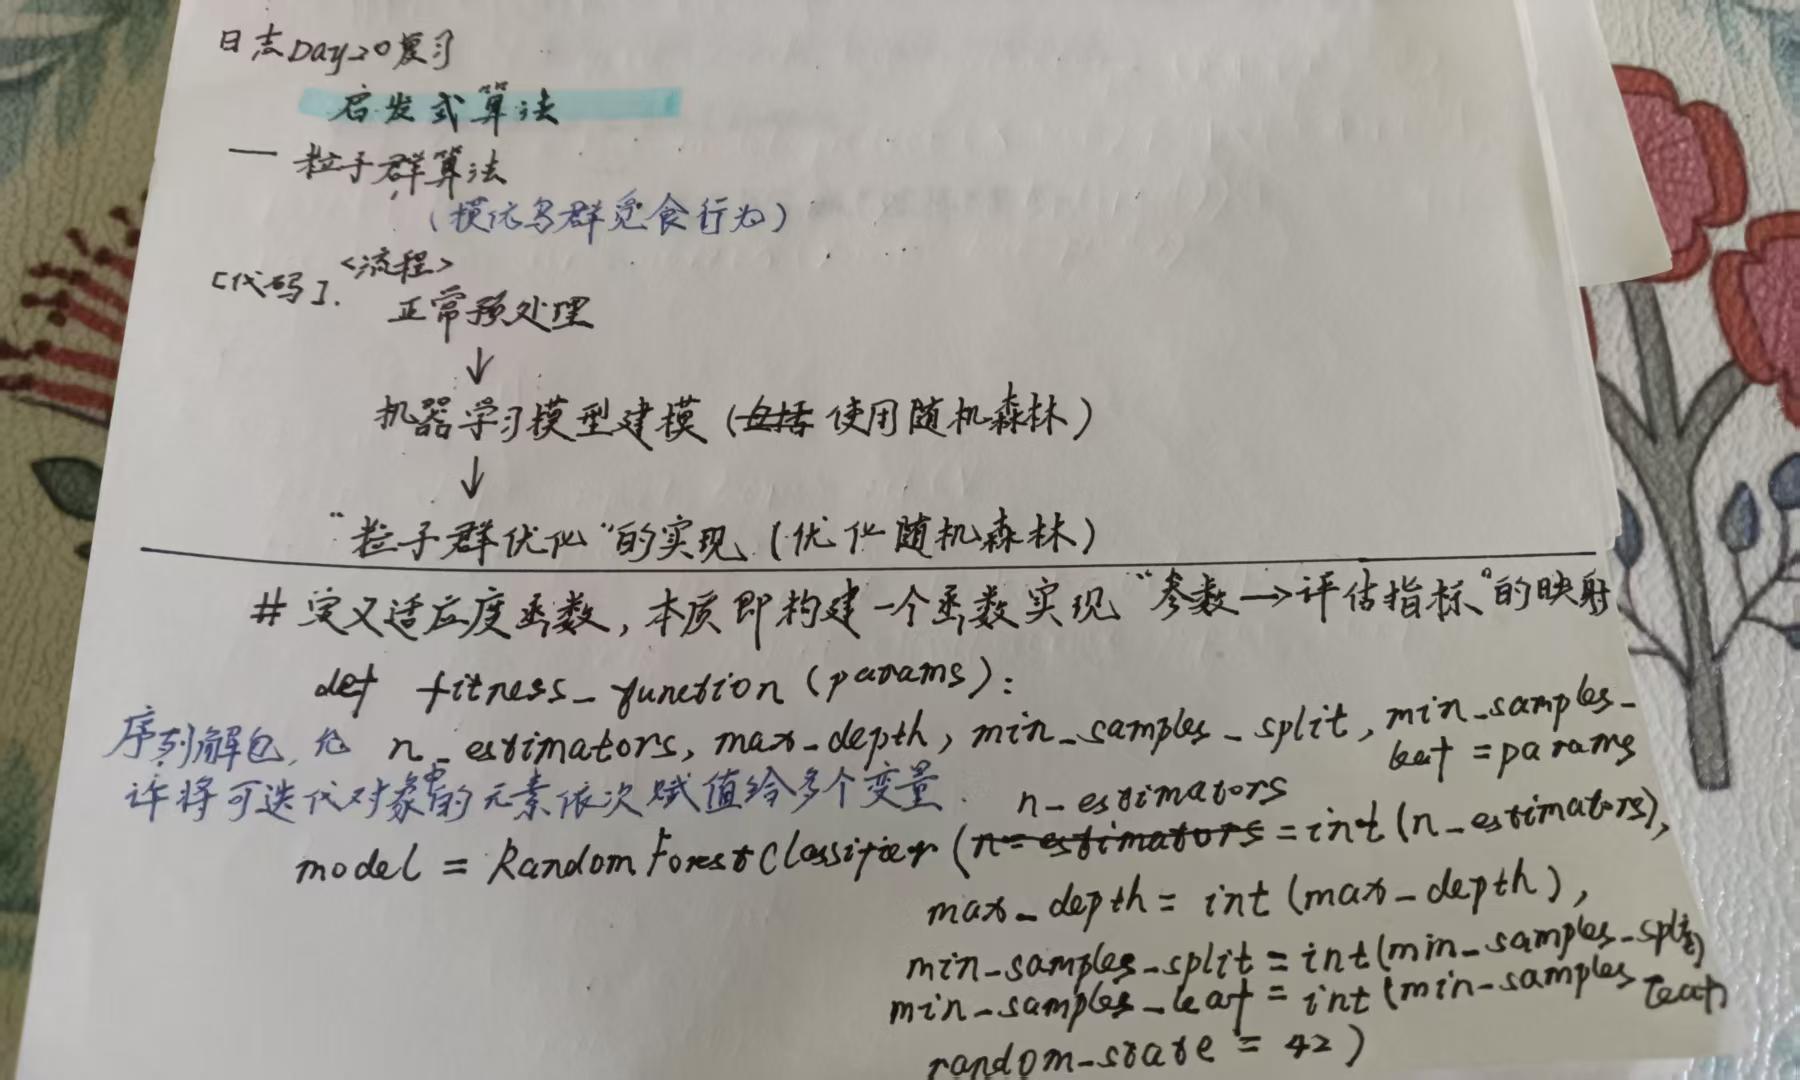 日志Day20复习
启发式算法
— 粒子群算法
(模仿鸟群觅食行为)
[代码]. <流程>
正常预处理
↓
机器学习模型建模 (包括 使用随机森林)
↓
"粒子群优化"的实现 (优化随机森林)
# 定义适应度函数, 本质即构建一个函数实现 "参数→评估指标"的映射
def fitness_function (params):
序列解包, 允
许将可迭代对象中的元素依次赋值给多个变量.
n_estimators, max_depth, min_samples_split, min_samples_
leaf = params
n_estimators
model = RandomForestClassifier (n_estimators = int (n_estimators),
max_depth = int (max_depth),
min_samples_split = int(min_samples_split)
min_samples_leaf = int (min_samples leaf)
random_state = 42 )